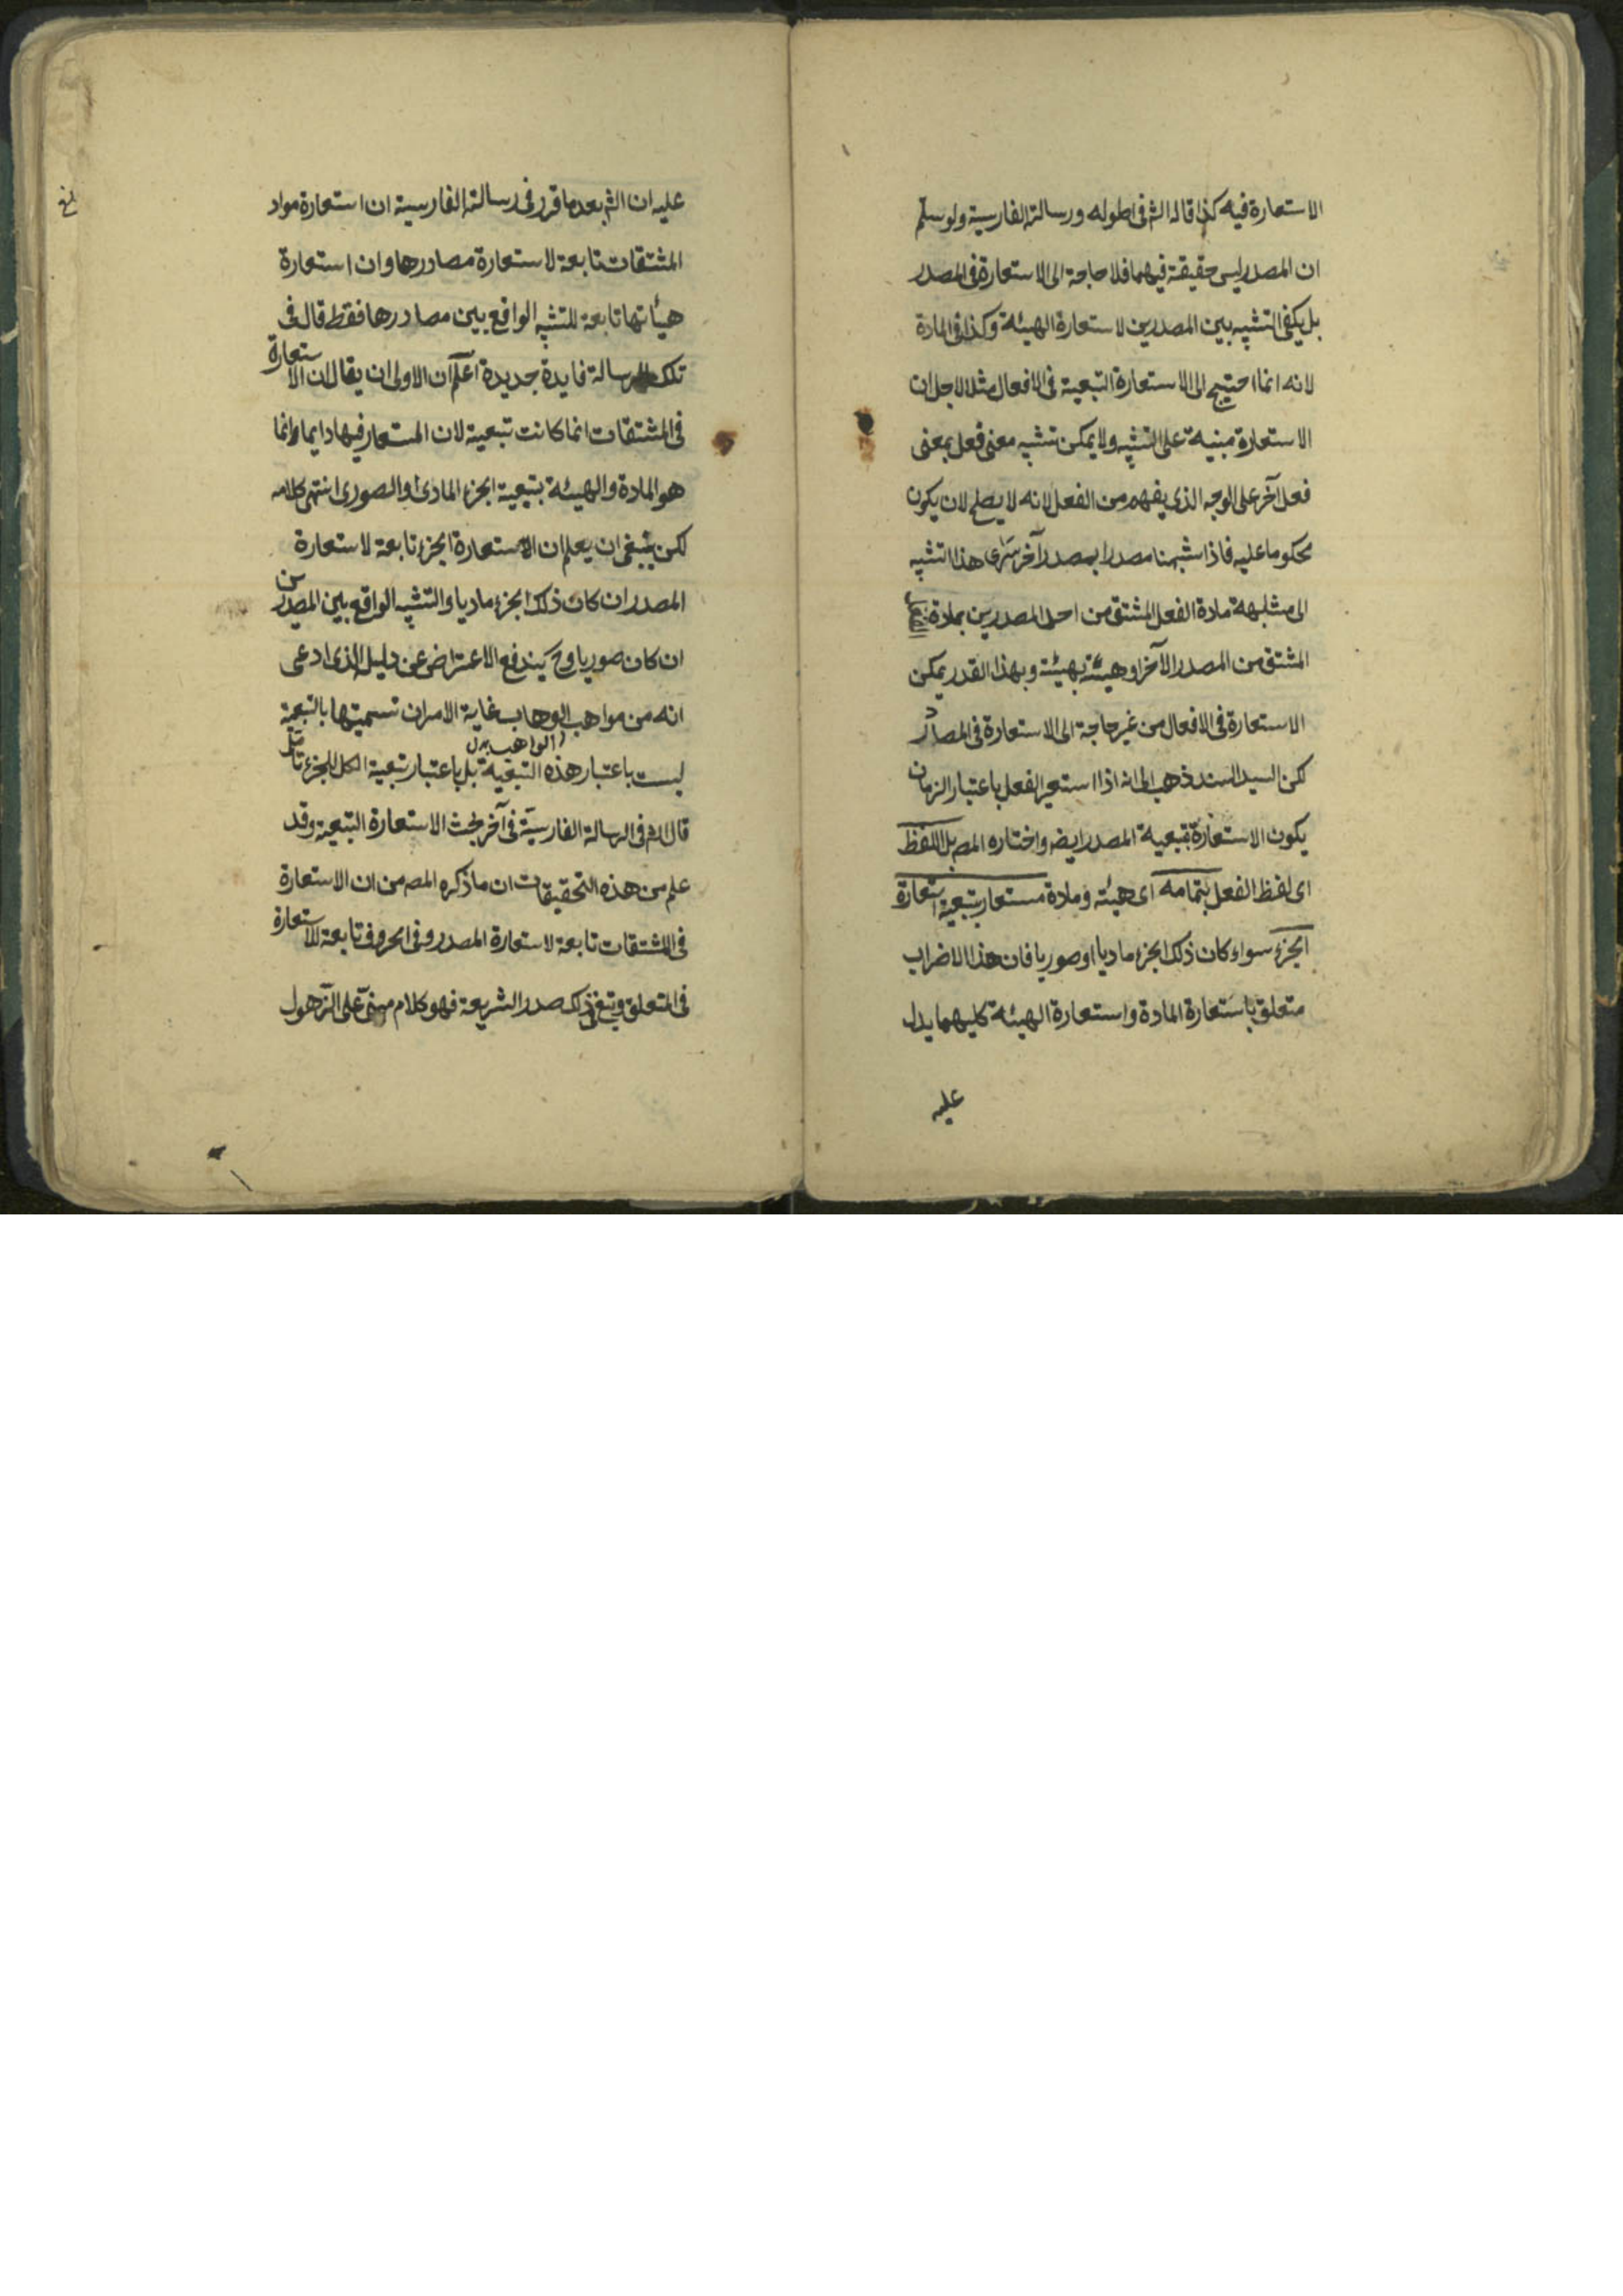 الاستعارة فيه كذا قاله الش في اطوله ورسالته الفارسية ولو سلم
ان المصدر ليس حقيقة فيهما فلا حاجة الى الاستعارة في المصدر
بل يكفي التشبيه بين المصدرين لاستعارة الهيئة وكذا في المادة
لانه انما احتيج الى الاستعارة التبعية في الافعال مثلا لاجل ان
الاستعارة مبنية على التشبيه ولا يمكن تشبيه معنى فعل بمعنى
فعل آخر على الوجه الذي يفهم من الفعل لانه لا يصلح لان يكون
محكوما عليه فاذا شبهنا مصدرا بمصدر آخر سرى هذا التشبيه
الى مشابهة مادة الفعل المشتق من احد المصدرين بمادة
المشتق من المصدر الآخر او هيئته بهيئته وبهذا القدر يمكن
الاستعارة في الافعال من غير حاجة الى الاستعارة في المصادر
لكن السيد السند ذهب الى انه اذا استعير الفعل باعتبار الزمان
يكون الاستعارة بتبعية المصدر ايضا واختاره المص بل اللفظ
اى لفظ الفعل بتمامه اى هيئته ومادة مستعار بتبعية استعارة
الجزء سواء كان ذلك الجزء ماديا او صوريا فان هذا الاضراب
متعلق باستعارة المادة واستعارة الهيئة كليهما يدل
عليه
عليه ان الش بعد ما قرر في رسالته الفارسية ان استعارة مواد
المشتقات تابعة لاستعارة مصادرها وان استعارة
هيأتها تابعة للتشبيه الواقع بين مصادرها فقط قال في
تلك الرسالة فايدة جديدة اعلم ان الاولى ان يقال ان الاستعارة
في المشتقات انما كانت تبعية لان المستعار فيها دايما وانما
هو المادة والهيئة بتبعية الجزء المادى او الصورى انتهى كلامه
لكن ينبغي ان يعلم ان الاستعارة الجزء تابعة لاستعارة
المصدر ان كان ذلك الجزء ماديا والتشبيه الواقع بين المصدرين
ان كان صوريا وح يندفع الاعتراض عن دليل الذى ادعى
انه من مواهب الوهاب غاية الامر ان تسميتها بالتبعية
الواهب بدل
ليست باعتبار هذه التبعية بل باعتبار تبعية الكل للجزء تأمل
قال الش في الرسالة الفارسية في آخر بحث الاستعارة التبعية وقد
علم من هذه التحقيقات ان ما ذكره المص من ان الاستعارة
في المشتقات تابعة لاستعارة المصدر وفي الحروف تابعة للاستعارة
في المتعلق وتبع في ذلك صدر الشريعة فهو كلام مبنى على الذهول